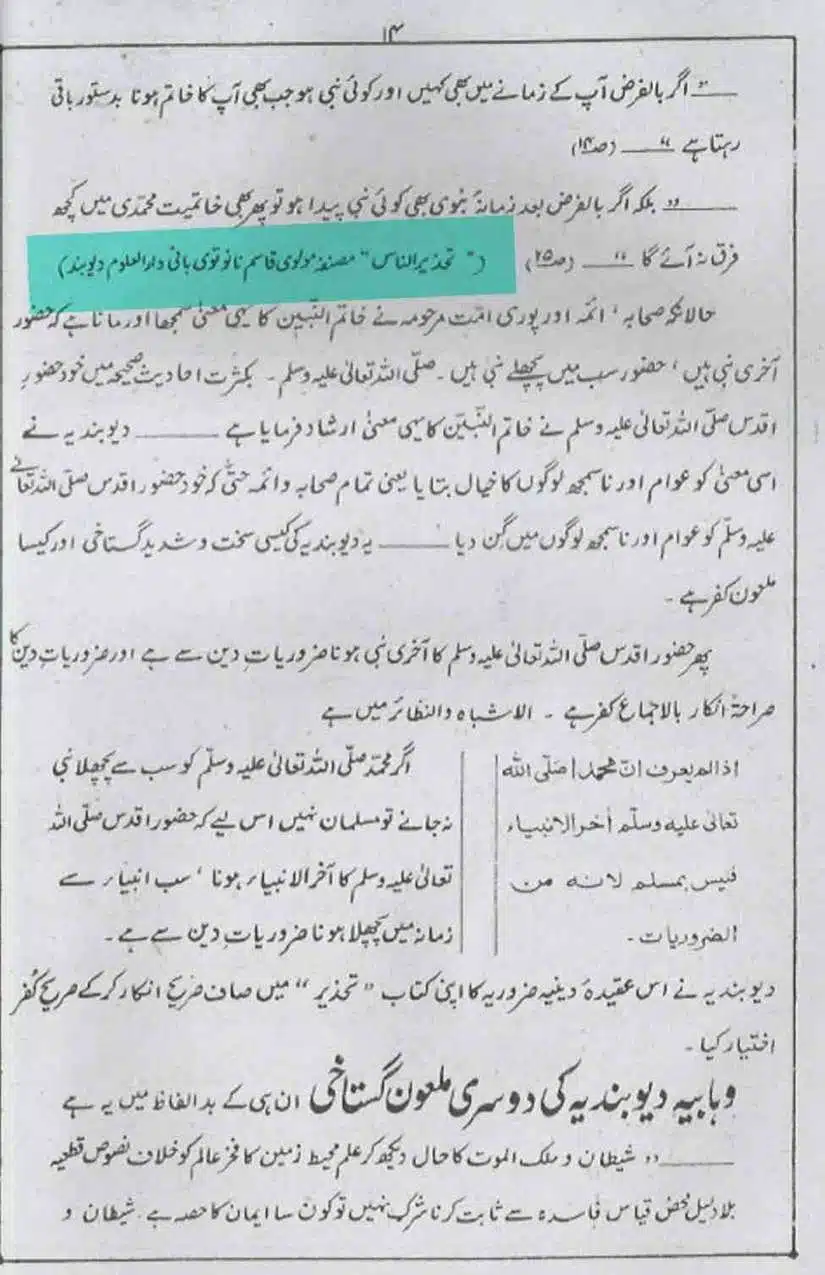 ۱۴
ــــ " اگر بالفرض آپ کے زمانے میں بھی کہیں اور کوئی نبی ہو جب بھی آپ کا خاتم ہونا بدستور باقی
رہتا ہے " ــــ (ص۱۴)
ــــ " بلکہ اگر بالفرض بعد زمانۂ نبوی بھی کوئی نبی پیدا ہو تو پھر بھی خاتمیت محمدی میں کچھ
فرق نہ آئے گا " ــــ (ص۲۵) (" تحذیر الناس " مصنفہ مولوی قاسم نانوتوی بانی دارالعلوم دیوبند)
حالانکہ صحابہ ' ائمہ اور پوری امت مرحومہ نے خاتم النبّین کا یہی معنیٰ سمجھا اور مانا ہے کہ حضور
آخری نبی ہیں ' حضور سب میں پچھلے نبی ہیں ۔ صلّی اللہ تعالیٰ علیہ وسلم ۔ بکثرت احادیثِ صحیحہ میں خود حضورِ
اقدس صلّی اللہ تعالیٰ علیہ وسلم نے خاتم النّبیّن کا یہی معنیٰ ارشاد فرمایا ہے ــــــ دیوبندیہ نے
اسی معنیٰ کو عوام اور ناسمجھ لوگوں کا خیال بتایا یعنی تمام صحابہ و ائمہ حتّٰی کہ خود حضور اقدس صلّی اللہ تعالیٰ
علیہ وسلّم کو عوام اور ناسمجھ لوگوں میں گِن دیا ــــــ یہ دیوبندیہ کی کیسی سخت و شدید گستاخی اور کیسا
ملعون کفر ہے ۔
پھر حضور اقدس صلّی اللہ تعالیٰ علیہ وسلم کا آخری نبی ہونا ضروریاتِ دین سے ہے اور ضروریاتِ دین کا
صراحۃً انکار بالاجماع کفر ہے ۔ الاشباہ والنظائر میں ہے
اذا لم یعرف انّ محمدا صلّی اللہ
تعالیٰ علیہ وسلّم اٰخر الانبیاء
فلیس بمسلم لانہ من
الضروریات ۔
اگر محمدّ صلّی اللہ تعالیٰ علیہ وسلّم کو سب سے پچھلا نبی
نہ جانے تو مسلمان نہیں اس لیے کہ حضور اقدس صلّی اللہ
تعالیٰ علیہ وسلم کا آخر الانبیاء ہونا ' سب انبیاء سے
زمانہ میں پچھلا ہونا ضروریاتِ دین سے ہے ۔
دیوبندیہ نے اس عقیدۂ دینیہ ضروریہ کا اپنی کتاب " تحذیر " میں صاف صریح انکار کرکے صریح کُفر
اختیار کیا ۔
وہابیہ دیوبندیہ کی دوسری ملعون گستاخی ان ہی کے بد الفاظ میں یہ ہے
ــــ " شیطان و ملک الموت کا حال دیکھ کر علم محیط زمین کا فخر عالم کو خلاف نصوص قطعیہ
بلا دلیل محض قیاس فاسدہ سے ثابت کرنا شرک نہیں تو کون سا ایمان کا حصہ ہے ۔ شیطان و